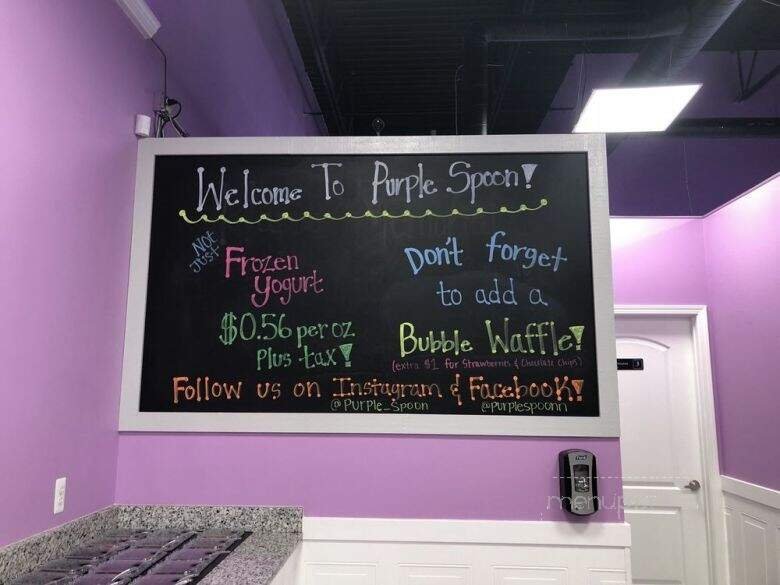 Welcome To Purple Spoon!
Not
Just
Frozen
Yogurt
$0.56 per oz
Plus tax!
Don't forget
to add a
Bubble Waffle!
(extra $1 for Strawberries & Chocolate Chips)
Follow us on Instagram & Facebook!
@Purple_Spoon
@purplespoonn